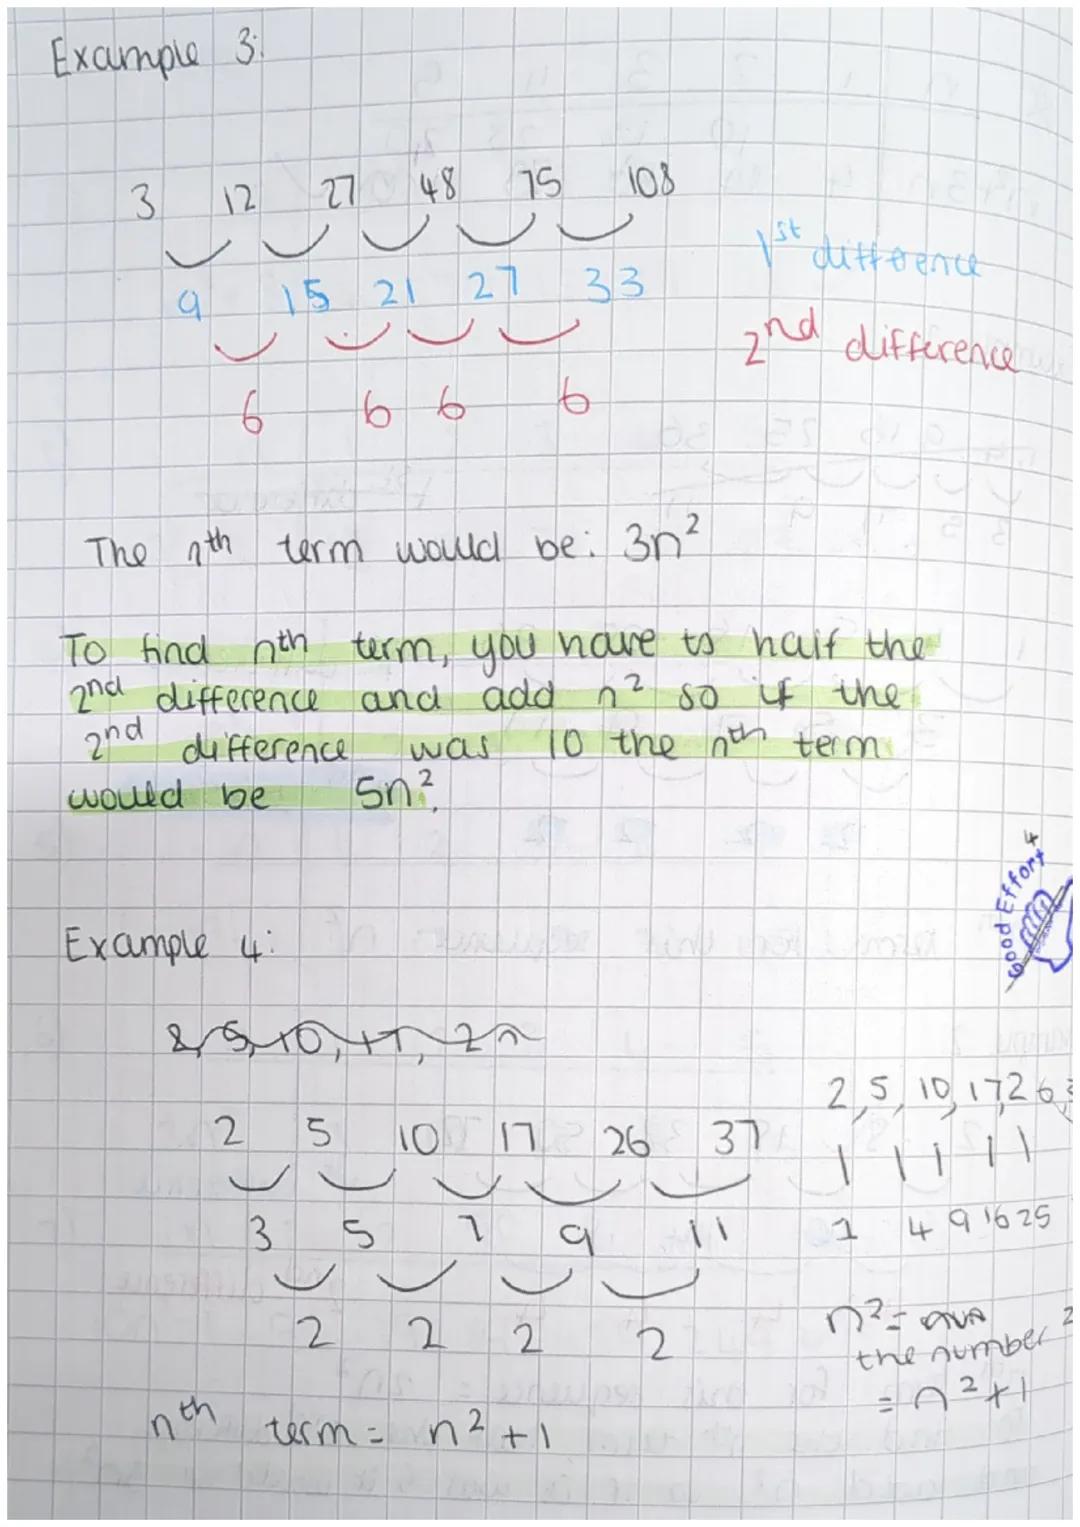 Example 3:
3 12 27 48 75 108
1st difference
9 15 21 27 33
2nd difference
6 6 6 6
The nth term would be: 3n²
To find nth term, you have to half the
2nd difference and add n² so if the
2nd difference was 10 the nth term
would be 5n².
Good Effort
Example 4:
2, 5, 10, 17,
2 5 10 17 26 37
3 5 7 9 11
2 2 2 2
nth term = n² + 1
2, 5, 10, 17, 26, 3
1 1 1 1 1
1 4 9 16 25
n² =
the number ²
= n² + 1